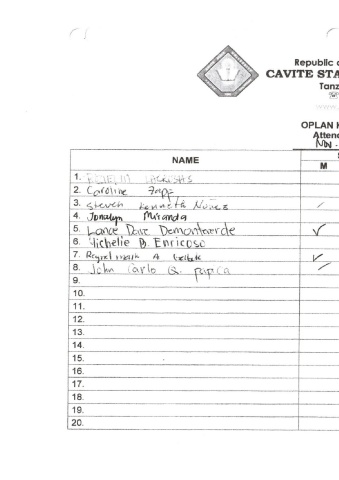 Republic o
CAVITE STA
Tanz
OPLAN K
Atten
NAME
M
1.
2. Caroline
3. Steven Kenneth Nuñez
4. Jonalyn Miranda
5. Lance Dave Demonteverde
6. Michelle D. Enricoso
7. A
8. John Carlo Q. papca
9.
10.
11.
12.
13.
14.
15.
16.
17.
18.
19.
20.